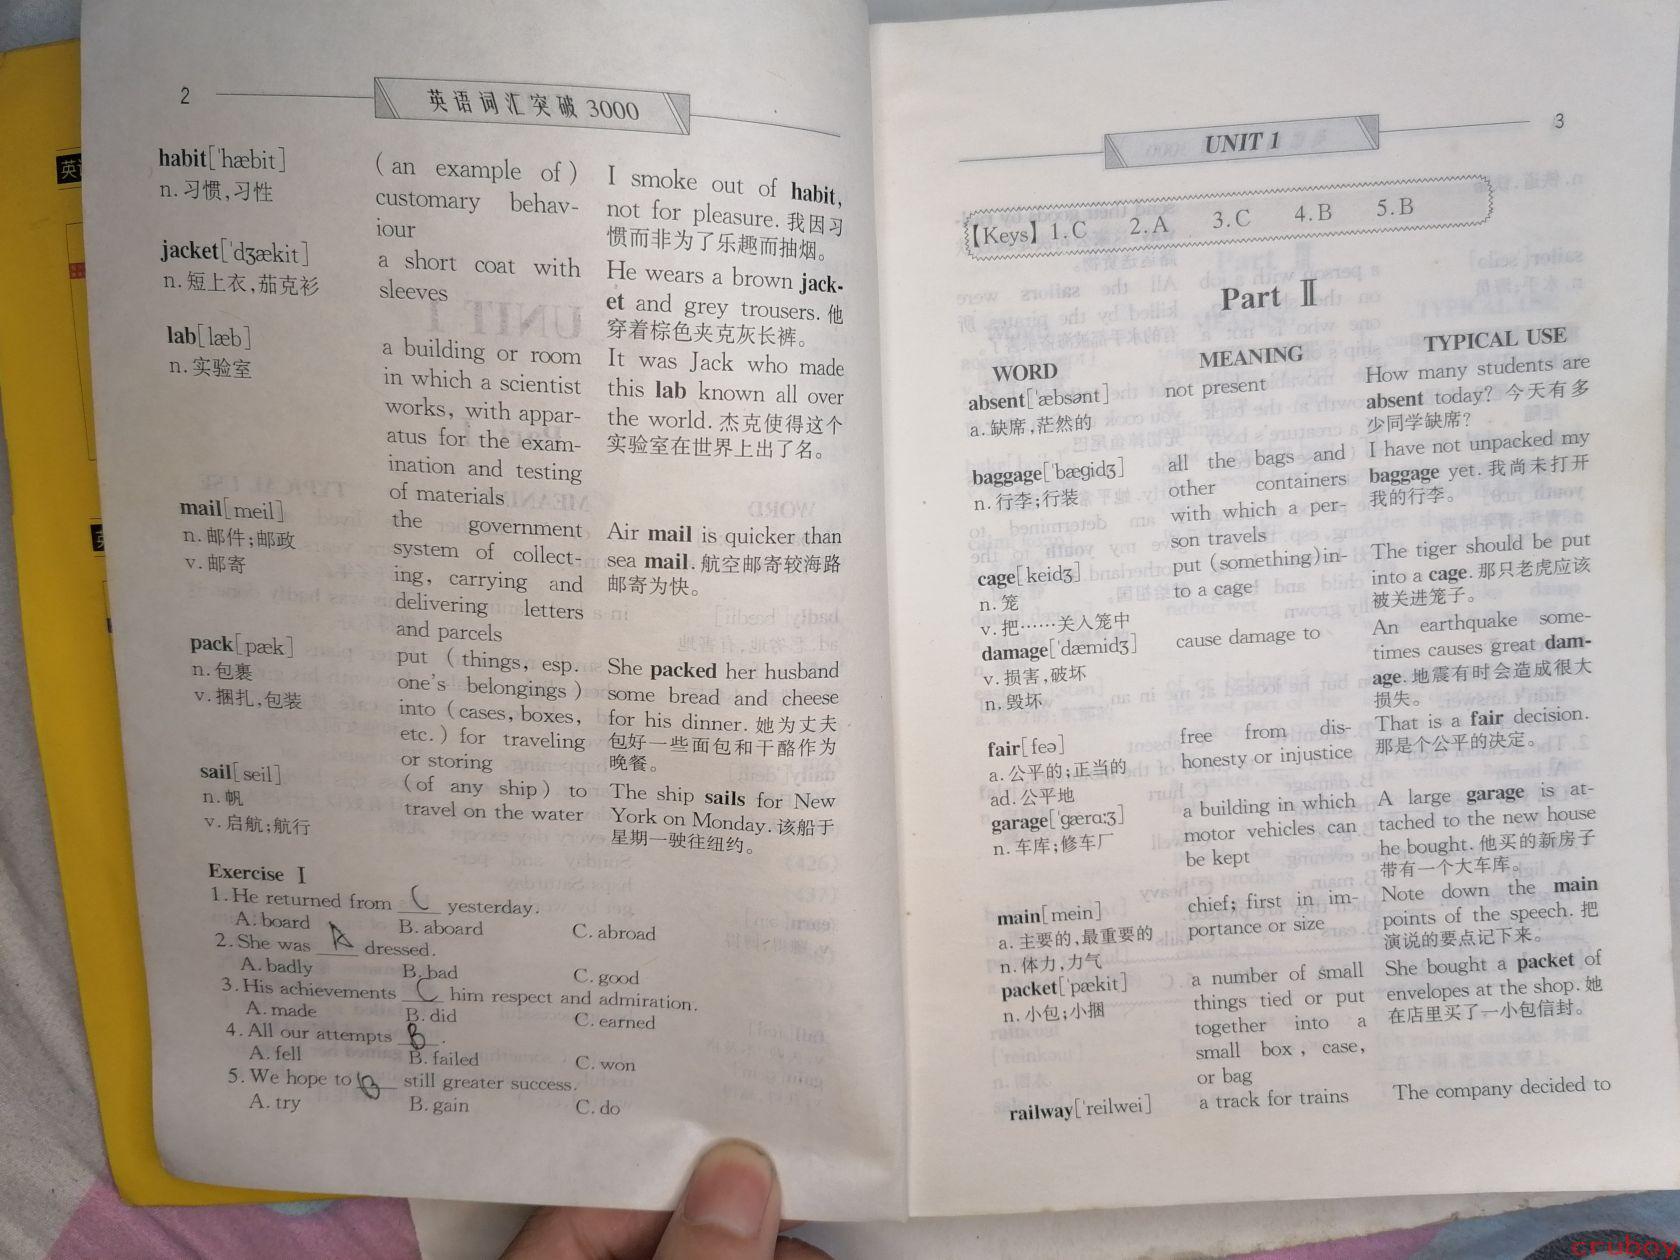 2
英语词汇突破 3000
habit[ˈhæbit]
n. 习惯,习性
(an example of)
customary behav-
iour
I smoke out of habit,
not for pleasure. 我因习
惯而非为了乐趣而抽烟。
jacket[ˈdʒækit]
n. 短上衣,茄克衫
a short coat with
sleeves
He wears a brown jack-
et and grey trousers. 他
穿着棕色夹克灰长裤。
lab[læb]
n. 实验室
a building or room
in which a scientist
works, with appar-
atus for the exam-
ination and testing
of materials
It was Jack who made
this lab known all over
the world. 杰克使得这个
实验室在世界上出了名。
mail[meil]
n. 邮件;邮政
v. 邮寄
the government
system of collect-
ing, carrying and
delivering letters
and parcels
Air mail is quicker than
sea mail. 航空邮寄较海路
邮寄为快。
pack[pæk]
n. 包裹
v. 捆扎,包装
put (things, esp.
one's belongings)
into (cases, boxes,
etc.) for traveling
or storing
She packed her husband
some bread and cheese
for his dinner. 她为丈夫
包好一些面包和干酪作为
晚餐。
sail[seil]
n. 帆
v. 启航;航行
(of any ship) to
travel on the water
The ship sails for New
York on Monday. 该船于
星期一驶往纽约。
Exercise Ⅰ
1. He returned from C yesterday.
A. board B. aboard C. abroad
2. She was A dressed.
A. badly B. bad C. good
3. His achievements C him respect and admiration.
A. made B. did C. earned
4. All our attempts B.
A. fell B. failed C. won
5. We hope to B still greater success.
A. try B. gain C. do
UNIT 1
3
【Keys】1. C 2. A 3. C 4. B 5. B
Part Ⅱ
WORD MEANING TYPICAL USE
absent[ˈæbsənt]
a. 缺席,茫然的
not present
How many students are
absent today? 今天有多
少同学缺席?
baggage[ˈbæɡidʒ]
n. 行李;行装
all the bags and
other containers
with which a per-
son travels
I have not unpacked my
baggage yet. 我尚未打开
我的行李。
cage[keidʒ]
n. 笼
v. 把……关入笼中
put (something) in-
to a cage
The tiger should be put
into a cage. 那只老虎应该
被关进笼子。
damage[ˈdæmidʒ]
v. 损害,破坏
n. 毁坏
cause damage to
An earthquake some-
times causes great dam-
age. 地震有时会造成很大
损失。
fair[feə]
a. 公平的;正当的
ad. 公平地
free from dis-
honesty or injustice
That is a fair decision.
那是个公平的决定。
garage[ˈɡærɑːʒ]
n. 车库;修车厂
a building in which
motor vehicles can
be kept
A large garage is at-
tached to the new house
he bought. 他买的新房子
带有一个大车库。
main[mein]
a. 主要的,最重要的
n. 体力,力气
chief; first in im-
portance or size
Note down the main
points of the speech. 把
演说的要点记下来。
packet[ˈpækit]
n. 小包;小捆
a number of small
things tied or put
together into a
small box, case,
or bag
She bought a packet of
envelopes at the shop. 她
在店里买了一小包信封。
railway[ˈreilwei]
a track for trains
The company decided to
cruboy